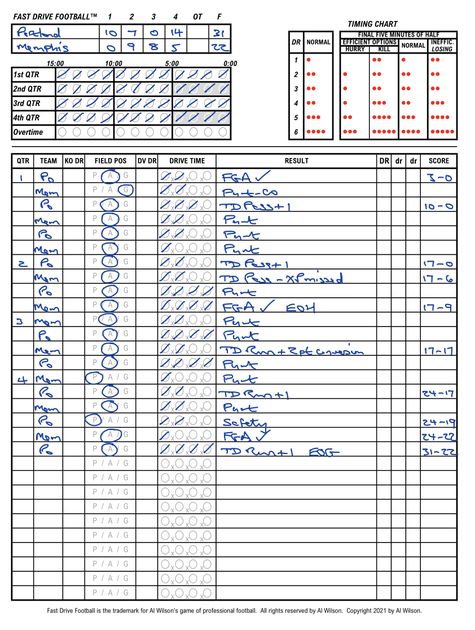 FAST DRIVE FOOTBALL™ 1 2 3 4 OT F
Portland 10 7 0 14 31
Memphis 0 9 8 5 22
15:00 10:00 5:00 0:00
1st QTR
2nd QTR
3rd QTR
4th QTR
Overtime
TIMING CHART
FINAL FIVE MINUTES OF HALF
DR NORMAL EFFICIENT OPTIONS NORMAL INEFFIC.
HURRY KILL LOSING
1
2
3
4
5
6
QTR TEAM KO DR FIELD POS DV DR DRIVE TIME RESULT DR dr dr SCORE
1 Po P A G FGA ✓ 3-0
Mem P / A / G Punt-CO
Po P A G TD Pass+1 10-0
Mem P A G Punt
Po P A G Punt
Mem P A G Punt
2 Po P A G TD Pass+1 17-0
Mem P A G TD Pass - XP missed 17-6
Po P A G Punt
Mem P A G FGA ✓ EOH 17-9
3 Mem P A G Punt
Po P A G Punt
Mem P A G TD Run+2pt conversion 17-17
Po P A G Punt
4 Mem P A / G Punt
Po P A G TD Run+1 24-17
Mem P A G Punt
Po P A / G Safety 24-19
Mem P A G FGA ✓ 24-22
Po P A G TD Run+1 EOG 31-22
P / A / G
P / A / G
P / A / G
P / A / G
P / A / G
P / A / G
P / A / G
P / A / G
P / A / G
P / A / G
Fast Drive Football is the trademark for Al Wilson's game of professional football. All rights reserved by Al Wilson. Copyright 2021 by Al Wilson.